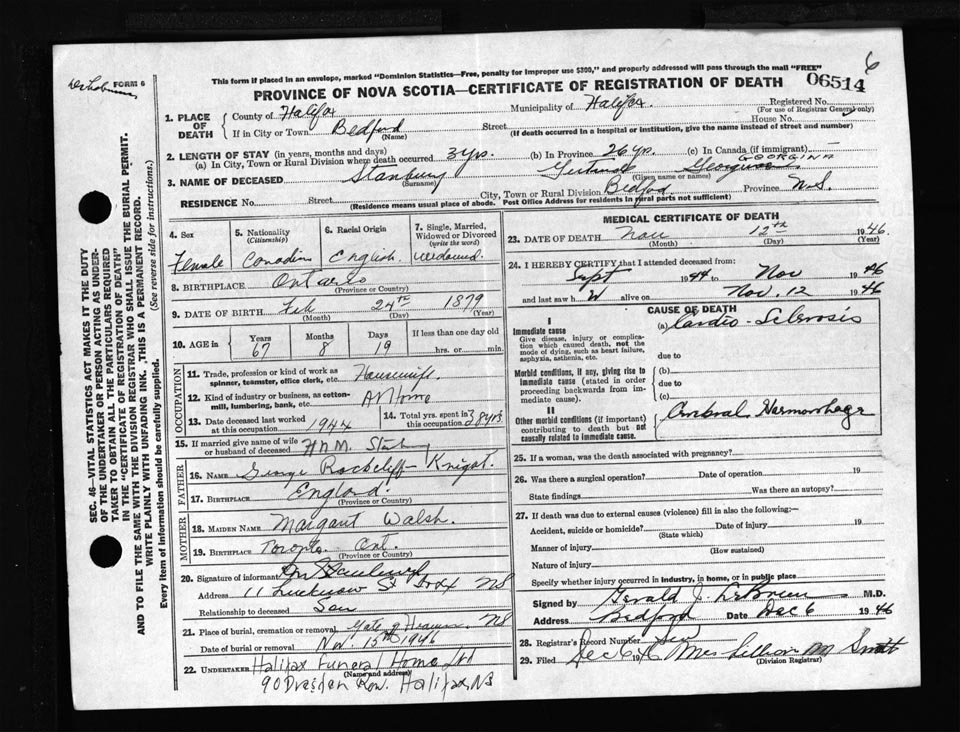 FORM 6
This form if placed in an envelope, marked "Dominion Statistics—Free, penalty for improper use $300," and properly addressed will pass through the mail "FREE"
6
PROVINCE OF NOVA SCOTIA—CERTIFICATE OF REGISTRATION OF DEATH
06514
SEC. 46—VITAL STATISTICS ACT MAKES IT THE DUTY
OF THE UNDERTAKER OR PERSON ACTING AS UNDER-
TAKER TO OBTAIN ALL THE PARTICULARS REQUIRED
IN THE "CERTIFICATE OF REGISTRATION OF DEATH"
AND TO FILE THE SAME WITH THE DIVISION REGISTRAR WHO SHALL ISSUE THE BURIAL PERMIT.
WRITE PLAINLY WITH UNFADING INK. THIS IS A PERMANENT RECORD.
Every item of information should be carefully supplied. (See reverse side for instructions.)
1. PLACE OF DEATH
County of Halifax Municipality of Halifax. Registered No.
(For use of Registrar General only)
If in City or Town Bedford Street House No.
(Name) (If death occurred in a hospital or institution, give the name instead of street and number)
2. LENGTH OF STAY (in years, months and days)
(a) In City, Town or Rural Division where death occurred 3 yrs. (b) In Province 26 yrs. (c) In Canada (if immigrant)
GEORGINA
3. NAME OF DECEASED Stanbury Gertrude
(Surname) (Given name or names)
RESIDENCE No. Street City, Town or Rural Division Bedford Province N.S.
(Residence means usual place of abode. Post Office Address for residents in rural parts not sufficient)
4. Sex
Female
5. Nationality
(Citizenship)
Canadian
6. Racial Origin
English
7. Single, Married,
Widowed or Divorced
(write the word)
Widowed.
8. BIRTHPLACE Ontario
(Province or Country)
9. DATE OF BIRTH Feb 24th 1879
(Month) (Day) (Year)
10. AGE in Years Months Days If less than one day old
67 8 19 hrs. or min.
OCCUPATION
11. Trade, profession or kind of work as
spinner, teamster, office clerk, etc. Housewife.
12. Kind of industry or business, as cotton-
mill, lumbering, bank, etc. At Home
13. Date deceased last worked
at this occupation 1944
14. Total yrs. spent in
this occupation 38 yrs
15. If married give name of wife
or husband of deceased
FATHER
16. NAME George Knight.
17. BIRTHPLACE England
(Province or Country)
MOTHER
18. MAIDEN NAME Margaret Walsh.
19. BIRTHPLACE Toronto Ont.
(Province or Country)
20. Signature of informant
Address 11 Lucknow St NS
Relationship to deceased Son
21. Place of burial, cremation or removal Gate of Heaven NS
Date of burial or removal Nov. 15th 1946
22. UNDERTAKER Halifax Funeral Home Ltd
(Name and address)
90 Dresden Row. Halifax, NS
MEDICAL CERTIFICATE OF DEATH
23. DATE OF DEATH Nov 12th 1946.
(Month) (Day) (Year)
24. I HEREBY CERTIFY that I attended deceased from:
Sept 1944 to Nov 1946
and last saw h alive on Nov. 12 1946
CAUSE OF DEATH
I
Immediate cause
Give disease, injury or complica-
tion which caused death, not the
mode of dying, such as heart failure,
asphyxia, asthenia, etc.
(a) Cardio-Sclerosis
due to
Morbid conditions, if any, giving rise to
immediate cause (stated in order
proceeding backwards from im-
mediate cause).
(b)
due to
(c)
II
Other morbid conditions (if important)
contributing to death but not
causally related to immediate cause.
Cerebral Hemorrhage
25. If a woman, was the death associated with pregnancy?
26. Was there a surgical operation? Date of operation 19
State findings Was there an autopsy?
27. If death was due to external causes (violence) fill in also the following:—
Accident, suicide or homicide? Date of injury 19
(State which)
Manner of injury
(How sustained)
Nature of injury
Specify whether injury occurred in industry, in home, or in public place
Signed by Gerald J. LeBrun M.D.
Address Bedford Date Dec 6 1946
28. Registrar's Record Number
29. Filed Dec 6 1946 Mrs Lillian M Smith
(Division Registrar)